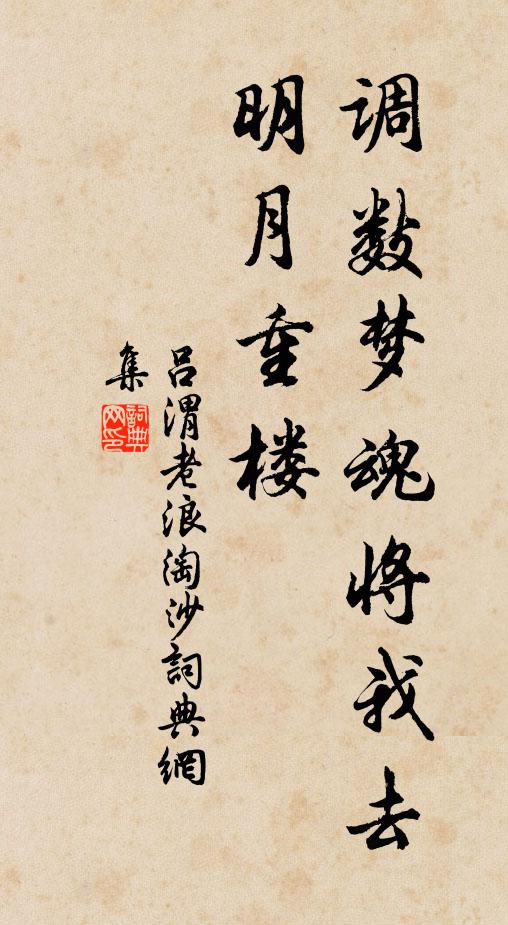 调数梦魂将我去
明月重楼
吕渭老浪淘沙詞典網
集
詞典网印